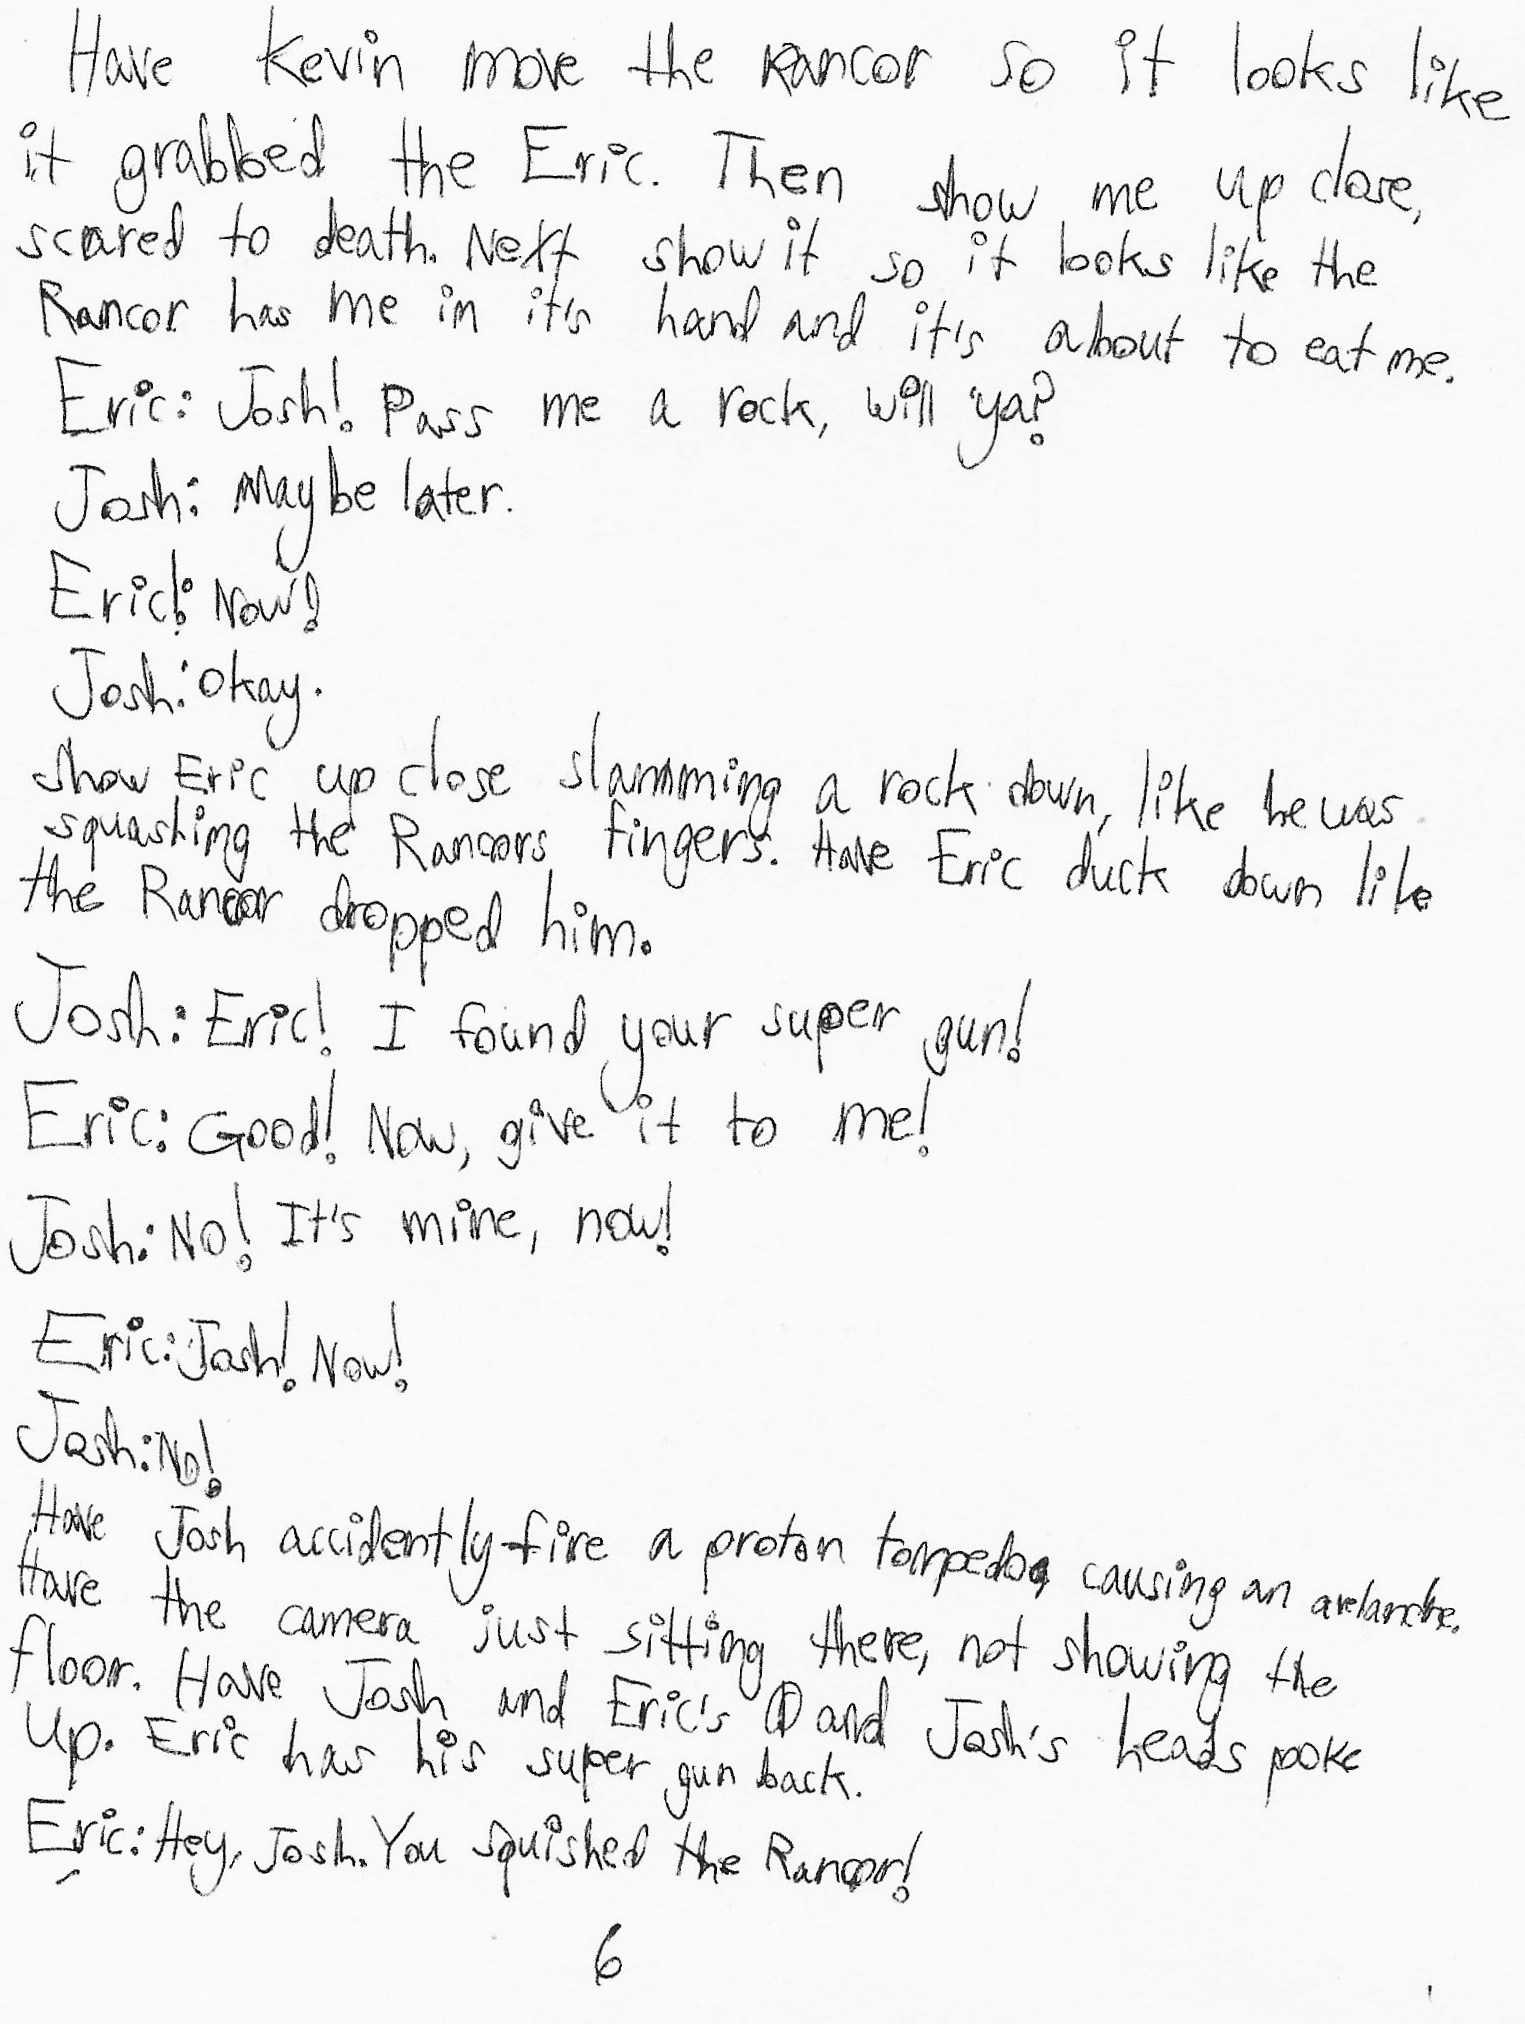 Have Kevin move the Rancor so it looks like
it grabbed the Eric. Then show me up close,
scared to death. Next show it so it looks like the
Rancor has me in it's hand and it's about to eat me.
Eric: Josh! Pass me a rock, will ya?
Josh: Maybe later.
Eric!: Now!
Josh: Okay.
Show Eric up close slamming a rock down, like he was
squashing the Rancors fingers. Have Eric duck down like
the Rancor dropped him.
Josh: Eric! I found your super gun!
Eric: Good! Now, give it to me!
Josh: No! It's mine, now!
Eric: Josh! Now!
Josh: No!
Have Josh accidently fire a proton torpedo, causing an avalanche.
Have the camera just sitting there, not showing the
floor. Have Josh and Eric's and Josh's heads poke
up. Eric has his super gun back.
Eric: Hey, Josh. You squished the Rancor!
6